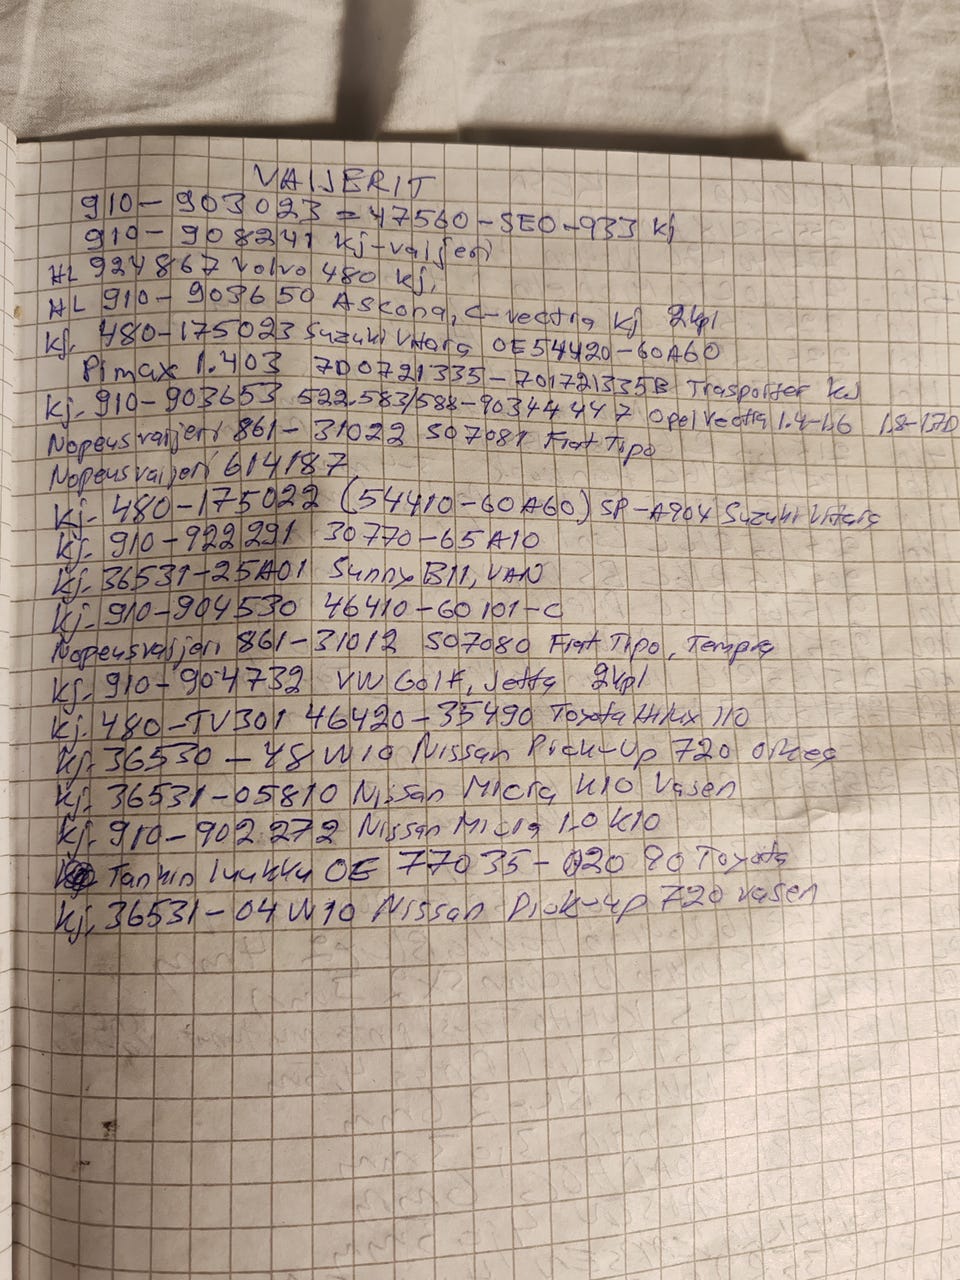 VAIJERIT
910-903023 = 47560-SE0-933 kj
910-908241 kj-vaijeri
HL 924867 Volvo 480 kj,
HL 910-903650 Ascona, C-vectra kj 2kpl
kj. 480-175023 Suzuki Vitara OE54420-60A60
Pimax 1.403 7D0721335-701721335B Trasporter kj
kj. 910-903653 522.583/588-90344447 Opel Vectra 1.4-1.6 1.8-1.7D
Nopeusvaijeri 861-31022 507081 Fiat Tipo
Nopeusvaijeri 614187
kj. 480-175022 (54410-60A60) SP-A904 Suzuki Vitara
kj. 910-922291 30770-65A10
kj. 36531-25A01 Sunny B11, VAN
kj. 910-904530 46410-60101-C
Nopeusvaijeri 861-31012 507080 Fiat Tipo, Tempra
kj. 910-904732 VW Golf, Jetta 2kpl
kj. 480-TV301 46420-35490 Toyota Hilux 110
kj. 36530-48W10 Nissan Pick-Up 720 oikea
kj. 36531-05B10 Nissan Micra K10 Vasen
kj. 910-902272 Nissan Micra 1.0 K10
Tankin luukku OE 77035-02090 Toyota
kj. 36531-04W10 Nissan Pick-up 720 vasen